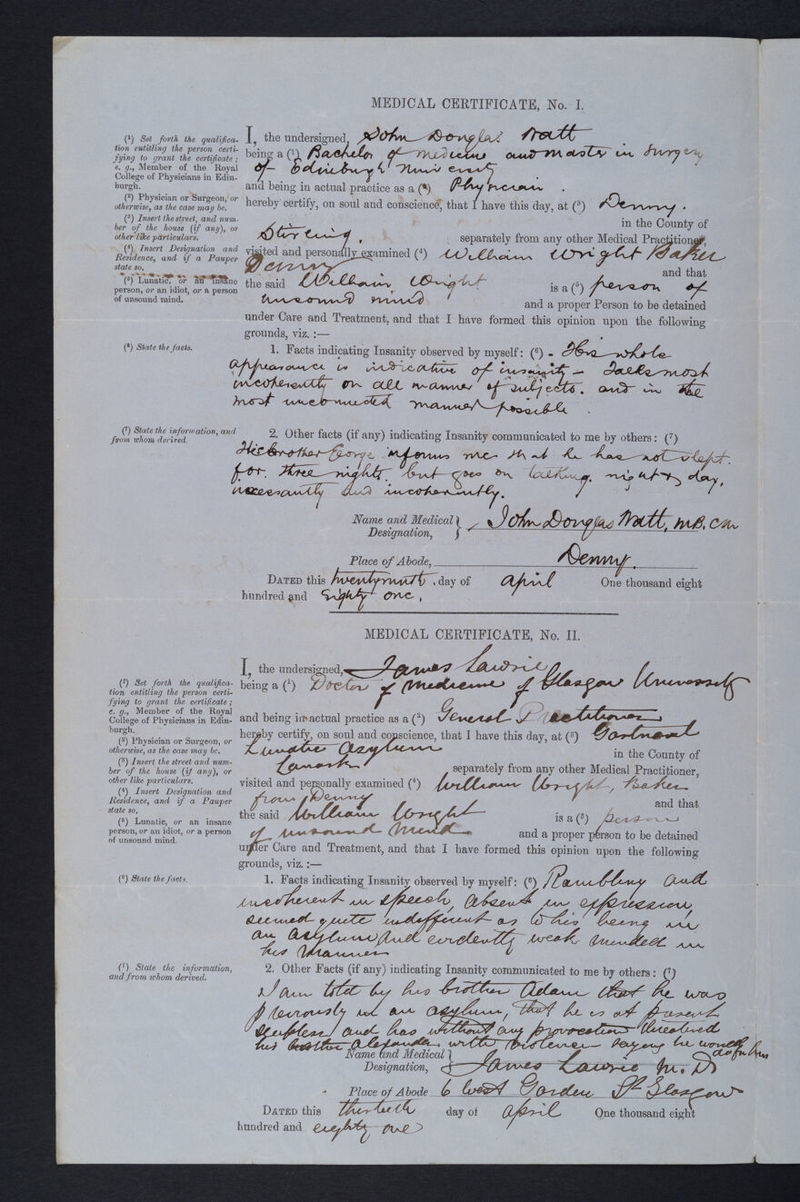 MEDICAL CERTIFICATE, No. I.
(¹) Set forth the qualifica-
tion entitling the person certi-
fying to grant the certificate;
e. g., Member of the Royal
College of Physicians in Edin-
burgh.
(²) Physician or Surgeon, or
otherwise, as the case may be.
(³) Insert the street, and num-
ber of the house (if any), or
other like particulars.
(⁴) Insert Designation and
Residence, and if a Pauper
state so.
(⁵) Lunatic, or an insane
person, or an idiot, or a person
of unsound mind.
I, the undersigned, John Douglas Watt
being a (¹) Bachelor of Medicine and Master in Surgery
of Edinburgh University
and being in actual practice as a (²) Physician .
hereby certify, on soul and conscience, that I have this day, at (³) Denny .
in the County of
Stirling, separately from any other Medical Practitioner,
visited and personally examined (⁴) William Wright Baker
Denny and that
the said William Wright is a (⁵) person of
unsound mind and a proper Person to be detained
under Care and Treatment, and that I have formed this opinion upon the following
grounds, viz. :—
(⁶) State the facts.
1. Facts indicating Insanity observed by myself: (⁶) - His whole
appearance is indicative of insanity - Talks most
incoherently on all manner of subjects. and in the
most unconnected manner possible .
(⁷) State the information, and
from whom derived.
2. Other facts (if any) indicating Insanity communicated to me by others: (⁷)
His brother George informs me that he has not slept.
for three nights. but goes on talking. night & day,
incessantly and incoherently.
Name and Medical Designation, John Douglas Watt, M.B. C.M.
Place of Abode, Denny.
DATED this twentyninth day of April One thousand eight
hundred and Eighty one,
MEDICAL CERTIFICATE, No. II.
(¹) Set forth the qualifica-
tion entitling the person certi-
fying to grant the certificate;
e. g., Member of the Royal
College of Physicians in Edin-
burgh.
(²) Physician or Surgeon, or
otherwise, as the case may be.
(³) Insert the street and num-
ber of the house (if any), or
other like particulars.
(⁴) Insert Designation and
Residence, and if a Pauper
state so.
(⁵) Lunatic, or an insane
person, or an idiot, or a person
of unsound mind.
I, the undersigned, James Lawrie
being a (¹) Doctor of Medicine of Glasgow University
and being in actual practice as a (²) General Practitioner
hereby certify, on soul and conscience, that I have this day, at (³) Gartnavel
Lunatic Asylum in the County of
Lanark separately from any other Medical Practitioner,
visited and personally examined (⁴) William Wright, Baker
from Denny and that
the said William Wright is a (⁵) person
of unsound mind and a proper person to be detained
under Care and Treatment, and that I have formed this opinion upon the following
grounds, viz. :—
(⁶) State the facts.
1. Facts indicating Insanity observed by myself: (⁶) Rambling and
incoherent in speech, absent in expression,
seemed quite indifferent as to his being in
an asylum and evidently weak minded in
his manner
(⁷) State the information,
and from whom derived.
2. Other Facts (if any) indicating Insanity communicated to me by others: (⁷)
I am told by his brother Adam that he was
previously in an asylum, that he is at present
sleepless and has without any provocation threatened
his brother Alexander with violence saying he would
do for him
Name and Medical Designation, James Lawrie M.D
Place of Abode 6 West Garden St Glasgow
DATED this thirtieth day of April One thousand eight
hundred and eighty one